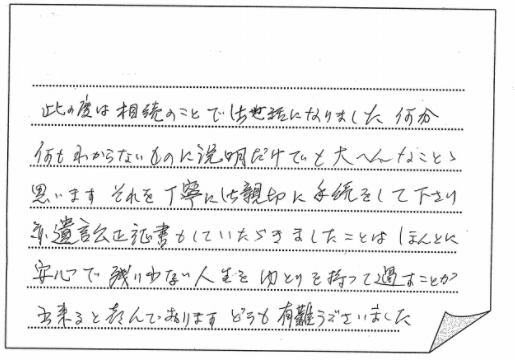 此の度は相続のことでお世話になりました 何分
何もわからないものに説明だけでも大へんなことゝ
思います それを丁寧にお親切に手続をして下さり
亦遺言公正証書もしていただきましたことはほんとに
安心で残り少ない人生をゆとりを持って過すことが
出来ると喜んでおります どうも有難うございました